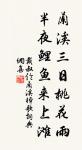 蘭溪三日桃花雨
半夜鯉魚來上灘
戴叔倫蘭溪棹歌詞典
網集